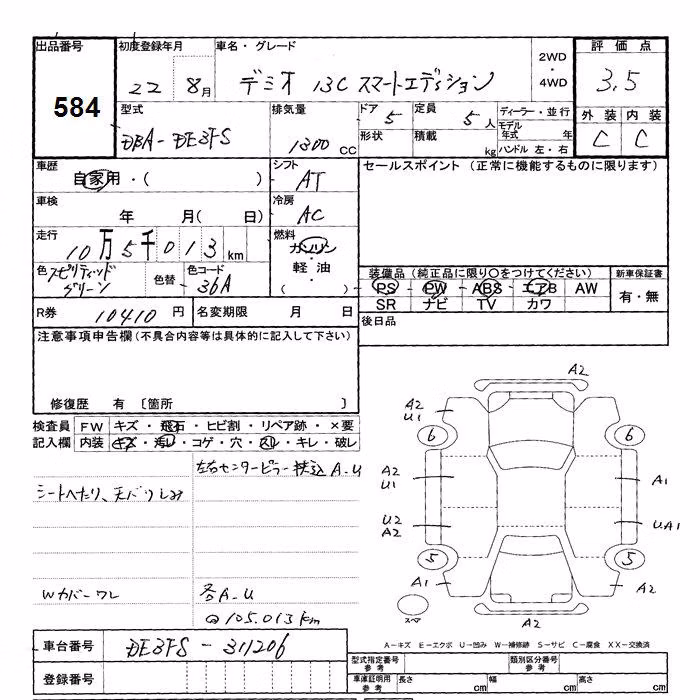 出品番号 初度登録年月 車名・グレード 2WD 評価点
584 22 8月 デミオ 13C スマートエディション ・ 4WD 3.5
型式 排気量 ドア 5 定員 5人 ディーラー・並行 外装 内装
DBA-DE3FS 1300 CC 形状 積載 kg モデル年式 年 C C
ハンドル 左・右
車歴 シフト セールスポイント (正常に機能するものに限ります)
自家用・( ) AT
車検 冷房
年 月( 日) AC
走行 燃料
10万5千013km ガソリン
色 スピリティッド グリーン 色替 色コード 36A 軽油・
( )
装備品 (純正品に限り○をつけてください) 新車保証書
PS PW ABS エアB AW 有・無
SR ナビ TV カワ
R券 10410円 名変期限 月 日 後日品
注意事項申告欄(不具合内容等は具体的に記入して下さい)
修復歴 有 〔箇所 〕
検査員 FW キズ・飛石・ヒビ割・リペア跡・×要
記入欄 内装 キズ・汚レ・コゲ・穴・スレ・キレ・破レ
左右センターピラー 押込 A-U
シートヘたり、天バリしみ
Wカバーワレ 各A-U
@105.013km
A2
A2 U1
6 6
A2 U1 A1
U2 A2 UA1
5 5
A1 A2
スペア A2
A-キズ E-エクボ U-凹み W-補修跡 S-サビ C-腐食 XX-交換済
車台番号 DE3FS-311206
型式指定番号 参考 類別区分番号 参考
登録番号 車庫証明用 参考 長さ cm 幅 cm 高さ cm